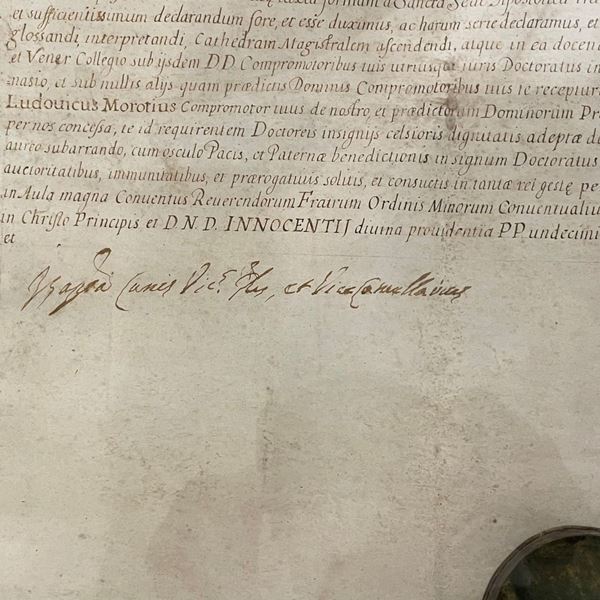 formam a Sancta Sede Apostolica
et sufficientissimum declarandum fore, et esse duximus, ac harum serie declaramus, et
glossandi, interpretandi, Cathedram Magistralem ascendendi, atque in ea docen
et Vener Collegio sub ijsdem D D. Compromotoribus tuis utriusque iuris Doctoratus in
nasio, et sub nullis alijs quam prædictis Dominis Compromotoribus tuis te receptur
Ludouicus Morotius Compromotor tuus de nostro, et prædictorum Dominorum Pr
per nos concessa, te id requirentem Doctoreis insignijs celsioris dignitatis adeptæ de
aureo subarrando, cum osculo Pacis, et Paternæ benedictionis in signum Doctoratus
auctoritatibus, immunitatibus, et prærogatiuis solitis, et consuetis in tantæ rei gestę pe
in Aula magna Conuentus Reuerendorum Fratrum Ordinis Minorum Conuentualiu
in Christo Principis et D. N. D. INNOCENTIJ diuina prouidentia PP. undecimi
et
et ViceCancellarius